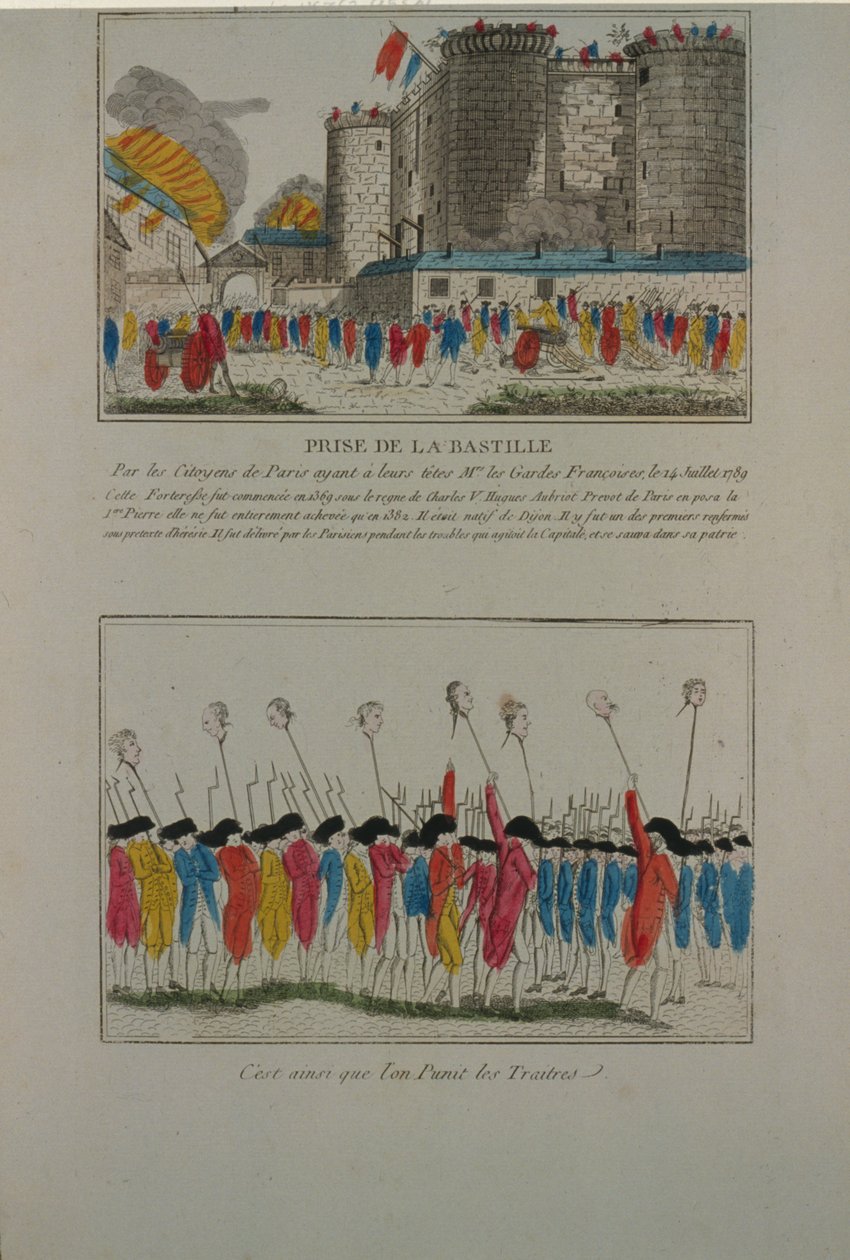 PRISE DE LA BASTILLE
Par les Citoyens de Paris ayant à leurs têtes Mrs. les Gardes Françoises, le 14 Juillet 1789
Cette Forteresse fut commencée en 1369 sous le regne de Charles V. Hugues Aubriot Prevot de Paris en posa la
1ere Pierre elle ne fut entierement achevée qu'en 1382. Il étoit natif de Dijon. Il y fut un des premiers renfermés
sous pretexte d'hérésie. Il fut délivré par les Parisiens pendant les troubles qui agitoit la Capitale, et se sauva dans sa patrie.
C'est ainsi que l'on Punit les Traitres.